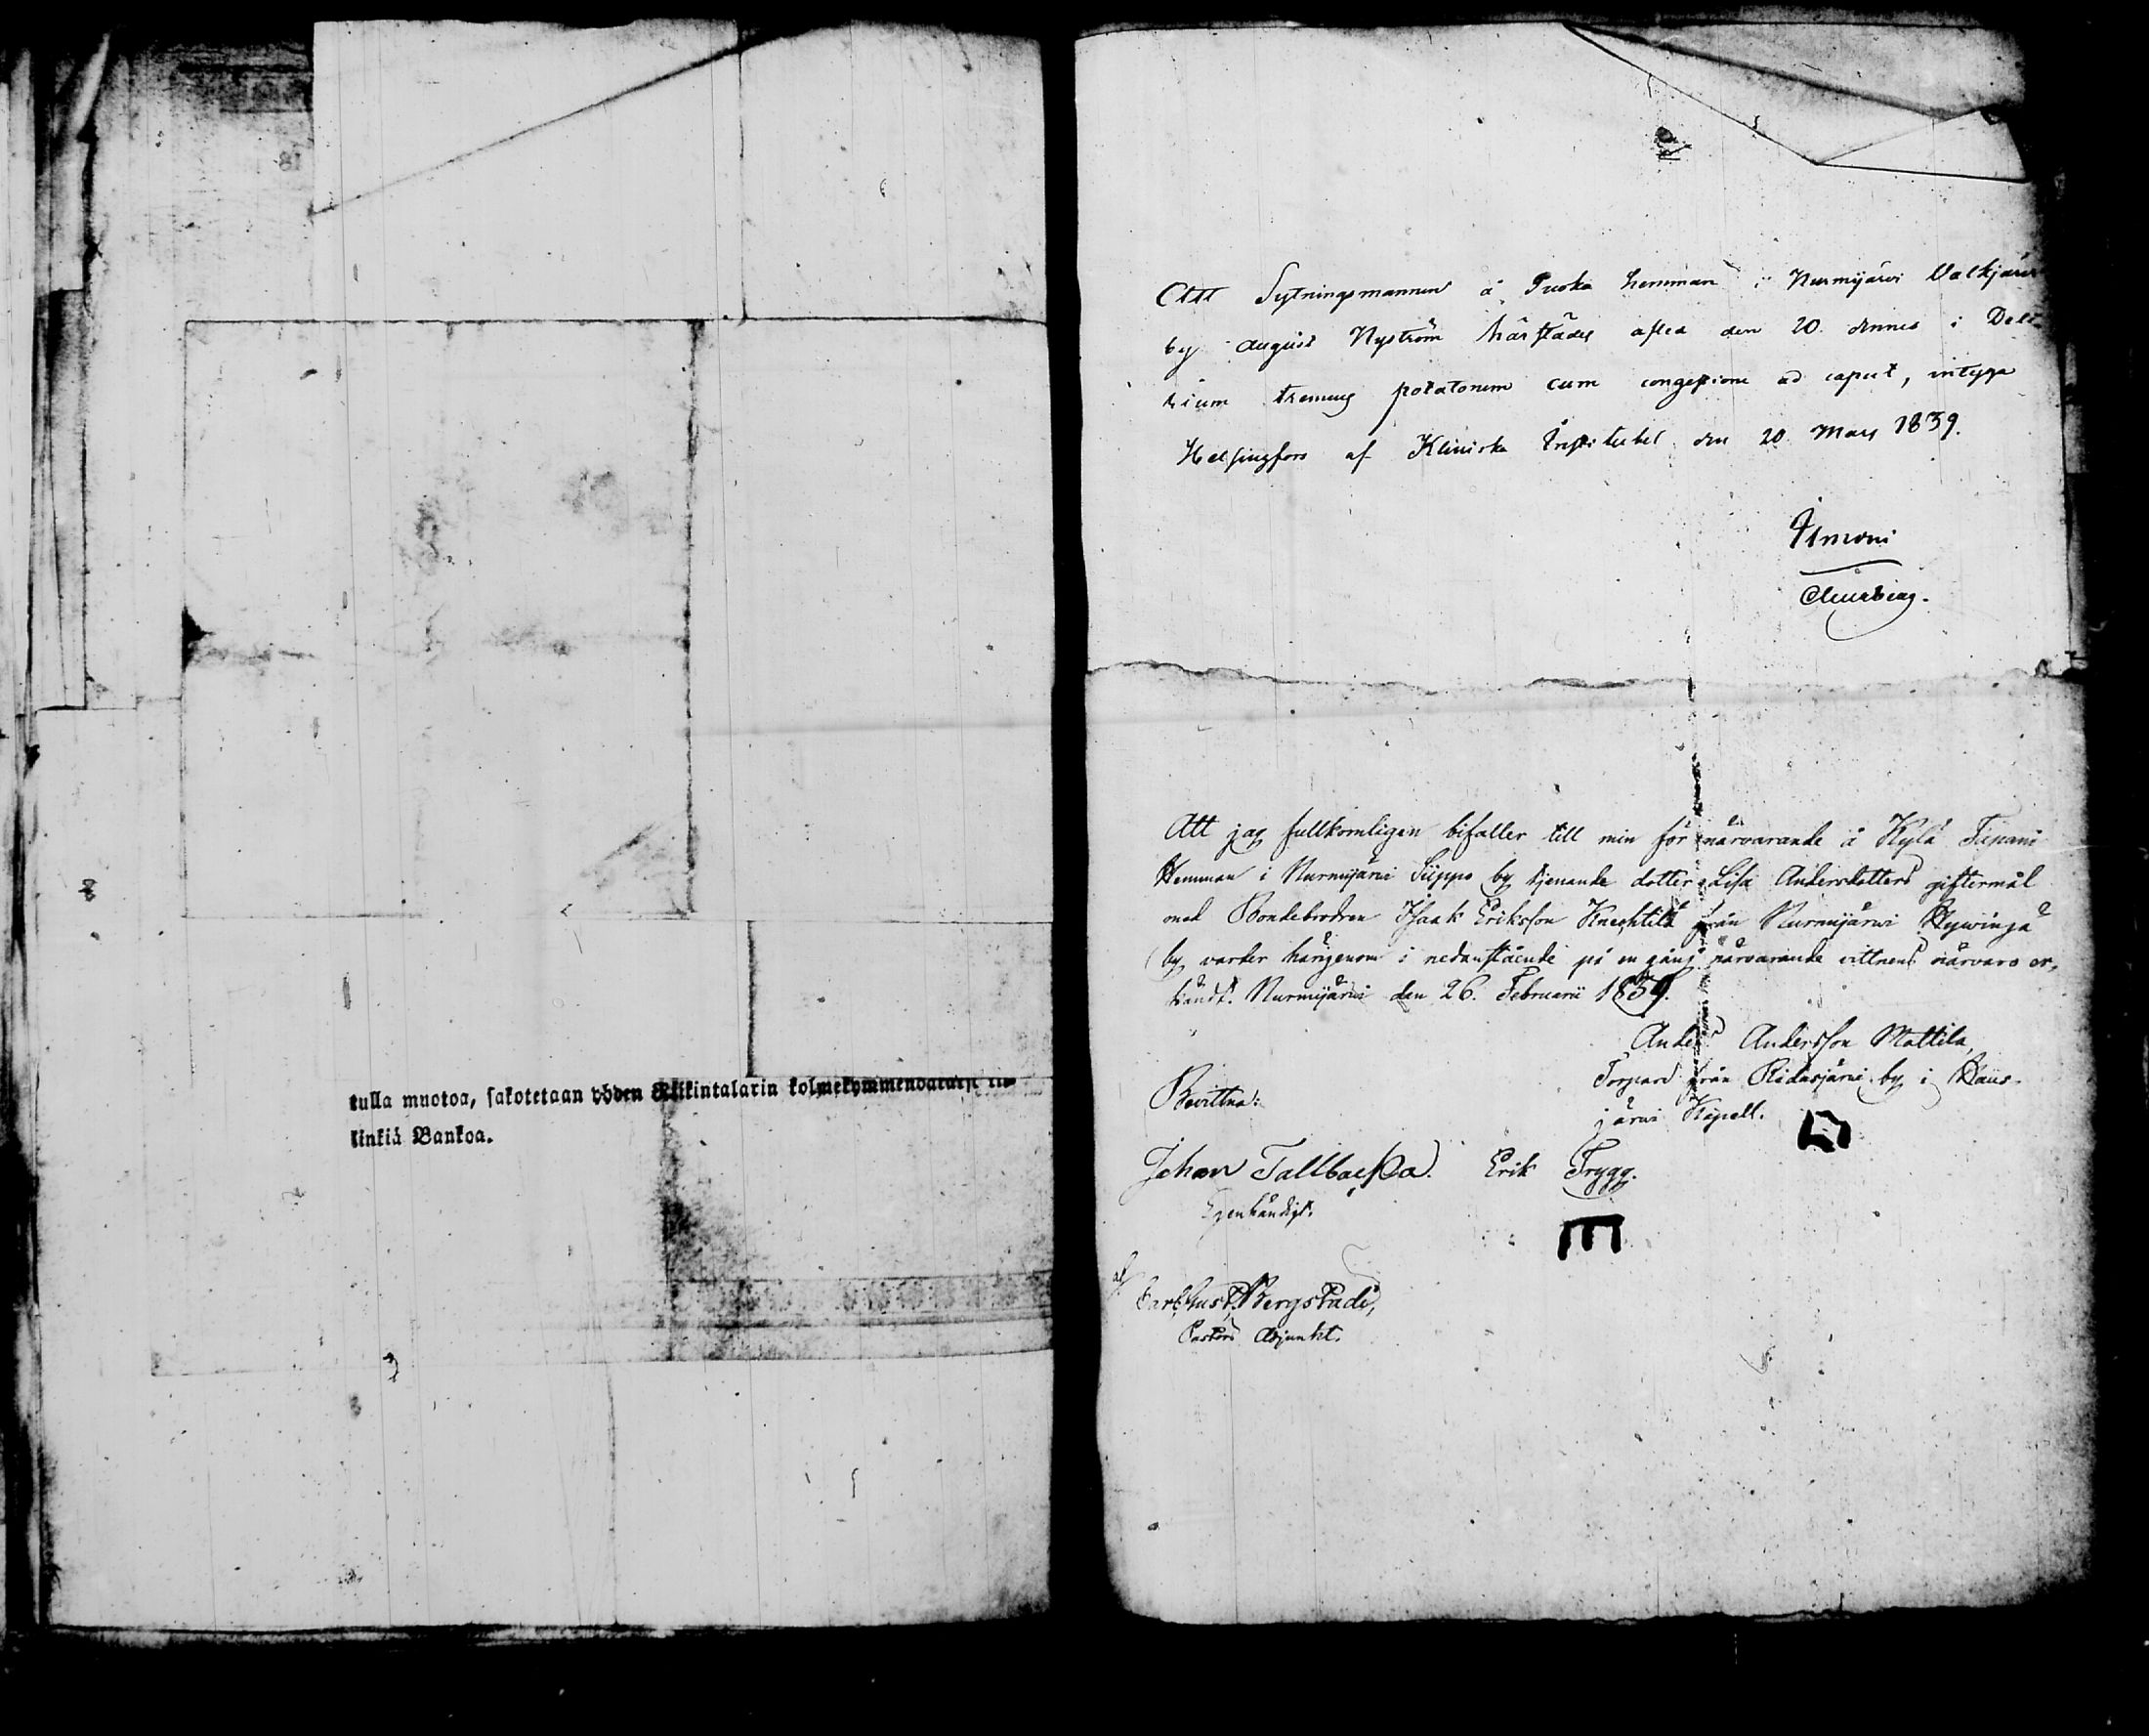 tulla muotoa, sakotetaan yhden Riikintalarin kolmekymmendätäist kil-
linkiä Bankoa.
Att Sytningsmannen å Puska hemman i Nurmijärvi Valkjärvi
by August Nyström härstädes afled den 20. dennes i Deli-
rium tremens potatorum cum congestione ad caput, intyga
Helsingfors af Kliniska Institutet den 20 Mars 1839.
Ilmoni
Att jag fullkomligen bifaller till min för närvarande å Kylä Tapani
Hemman i Nurmijärvi Siippo by tjenande dotter Lisa Andersdotters giftermål
med Bondebrodren Isaak Eriksson Knechtilä från Nurmijärvi Hywinge
by, varder härigenom i nedanstående på en gång närvarande vittnens närvaro er-
kändt. Nurmijärvi den 26. Februarii 1839.
Anders Andersson Mattila,
Torpare från Ridasjärvi by i Haus-
järvi Kapell.
Bevittna:
Johan Tallbacka. Erik Trygg.
Egenhändigt.
af Carl Gust. Bergstadi,
Pastors Adjunkt.